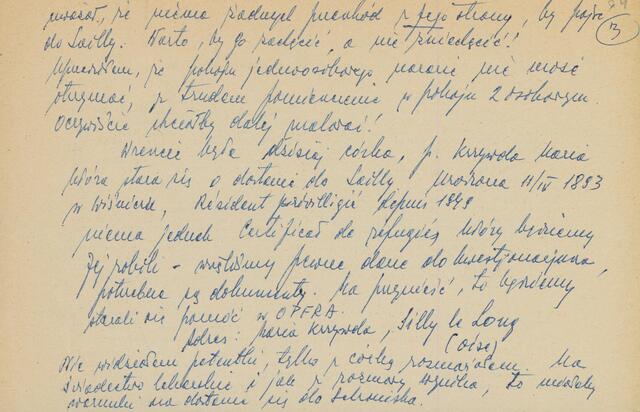 że niema żadnych przeszkód z jego strony, by pójść 13
do Sailly. Warto, by go zachęcić, a nie zniechęcić!
Uprzedziłem, że pokoju jednoosobowego narazie nie może
otrzymać, z trudem pomieszczenie w pokoju 2 osobowym.
Oczywiście chciałby dalej malować!
Wreszcie była dzisiaj córka, p. Krzywda Maria
która stara się o dostanie do Sailly urodzona 11/IV 1893
w Wiśniczu, Résident privilégié depuis 1949
niema jednak Certificat de réfugiés który będziemy
Jej robili - wzięliśmy pewne dane do kwestjonariusza,
potrzebne są dokumenty. Ma przynieść, to będziemy
starali się pomóc w OPFRA.
Adres: Maria Krzywda, Silly le Long
(Oise)
Nie widziałem petentki tylko z córką rozmawiałem. Ma
świadectwo lekarskie i jak z rozmowy wynika, to miałaby
warunki na dostanie się do Schroniska.